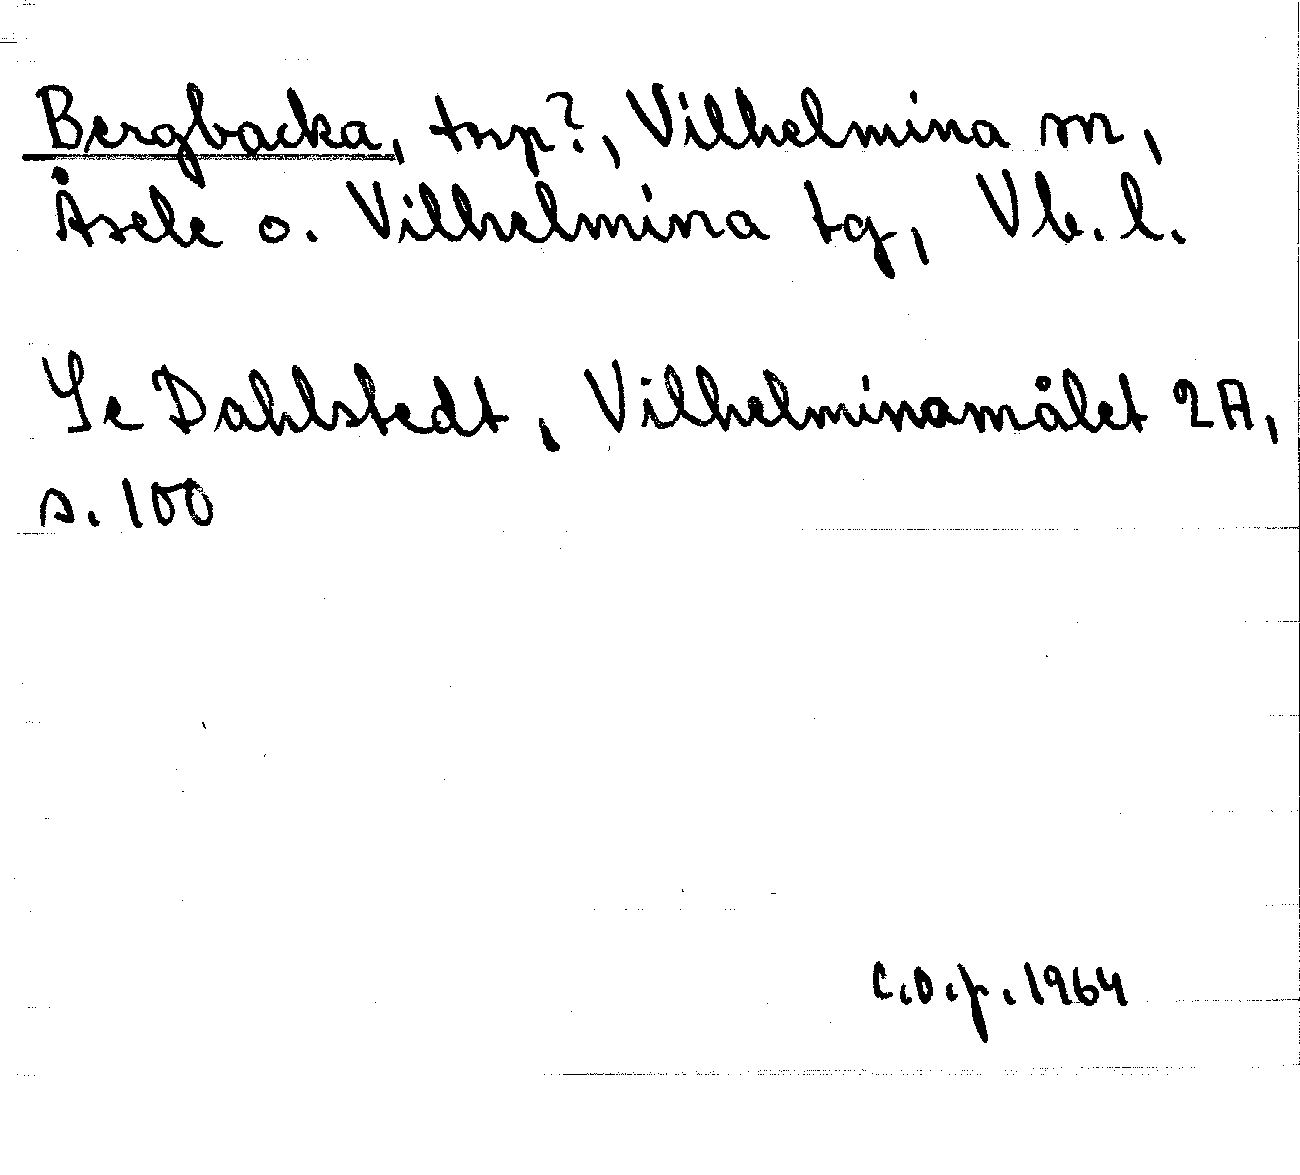 Bergbacka, tnp?, Vilhelmina sn,
Åsele o. Vilhelmina tg, Vb. l.
Se Dahlstedt, Vilhelminamålet 2A,
s. 100
C.O.p. 1964